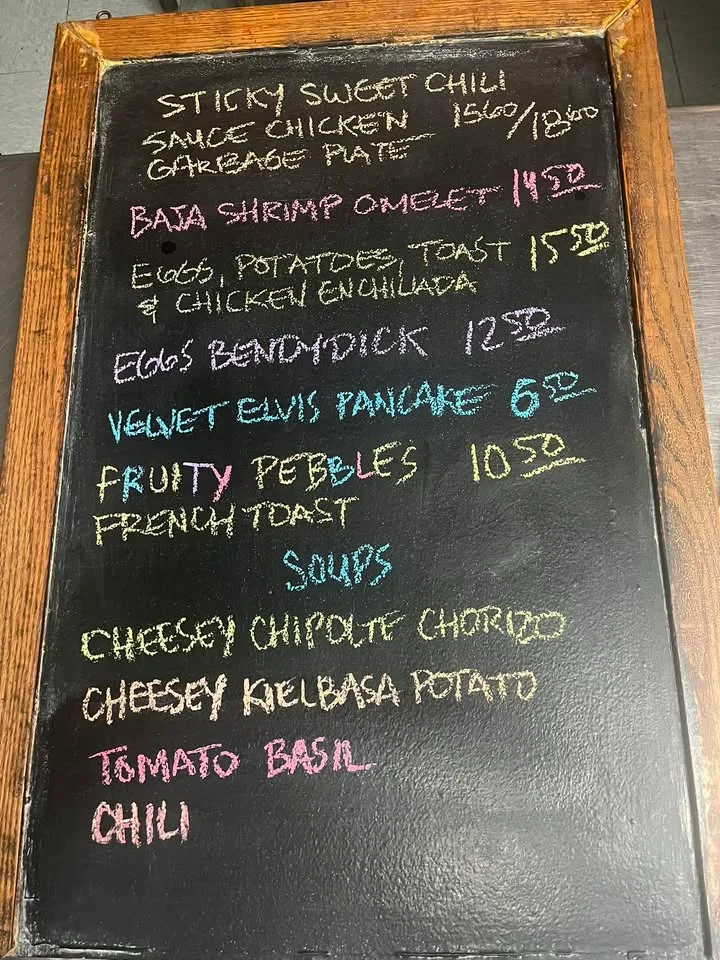 STICKY SWEET CHILI
SAUCE CHICKEN 1560/1860
GARBAGE PLATE
BAJA SHRIMP OMELET 14 50
EGGS, POTATOES, TOAST 15 50
& CHICKEN ENCHILADA
EGGS BENDYDICK 12 50
VELVET ELVIS PANCAKE 6 50
FRUITY PEBBLES 10 50
FRENCH TOAST
SOUPS
CHEESEY CHIPOLTE CHORIZO
CHEESEY KIELBASA POTATO
TOMATO BASIL
CHILI